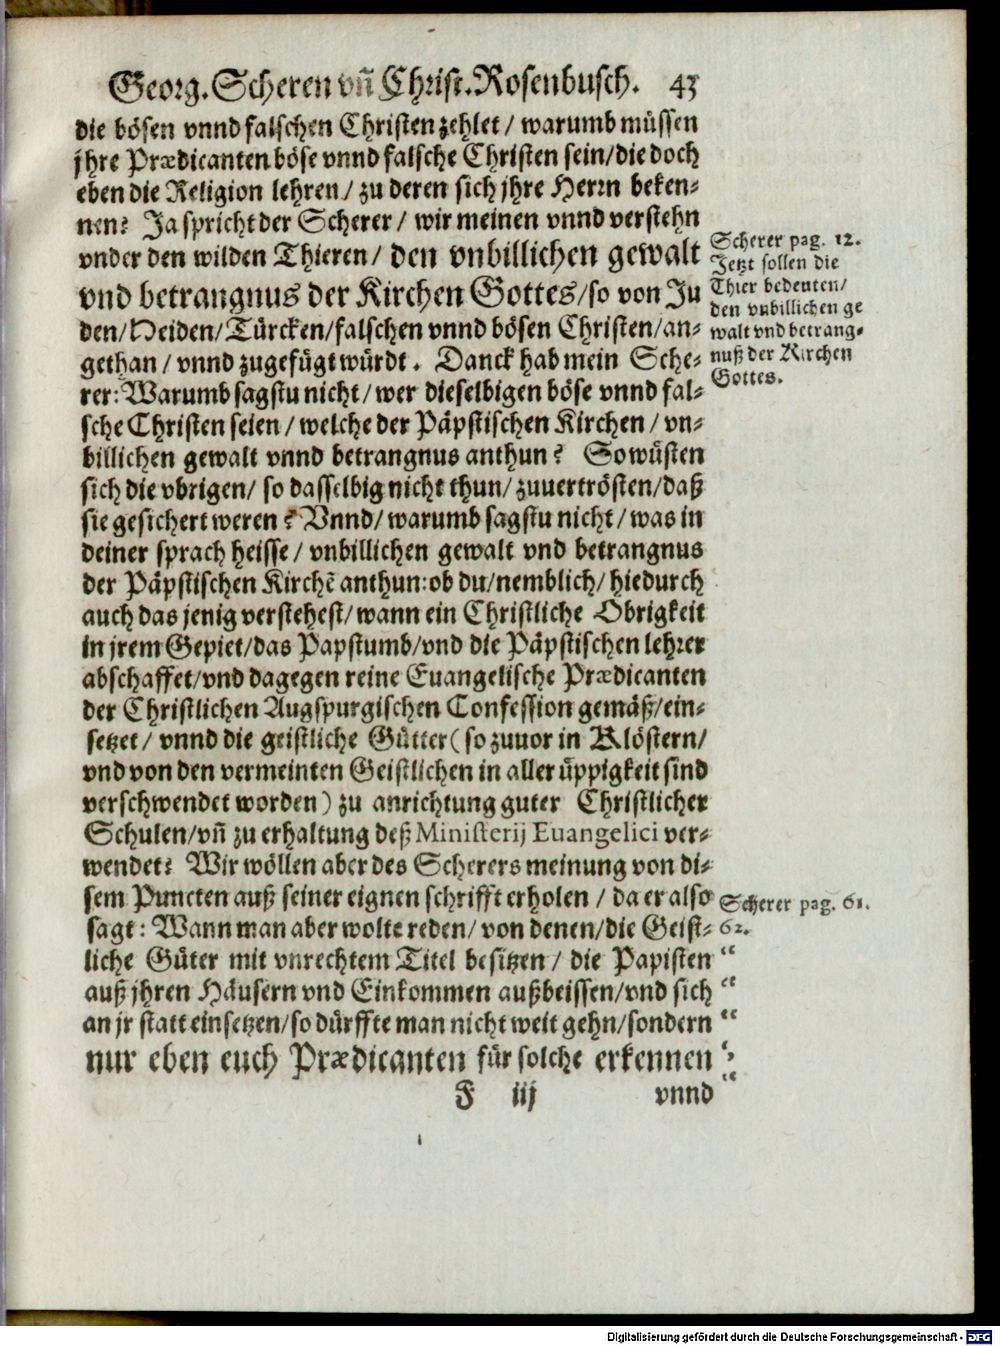 Georg. Scheren vñ Christ. Rosenbusch. 43
die bösen vnnd falschen Christen zehlet / warumb müssen
jhre Prædicanten böse vnnd falsche Christen sein/die doch
eben die Religion lehren / zu deren sich jhre Herrn beken-
nen? Ja spricht der Scherer / wir meinen vnnd verstehn
vnder den wilden Thieren / den vnbillichen gewalt
vnd betrangnus der Kirchen Gottes/so von Ju
den/Heiden/Türcken/falschen vnnd bösen Christen/an-
gethan / vnnd zugefügt würdt. Danck hab mein Sche-
rer: Warumb sagstu nicht / wer dieselbigen böse vnnd fal-
sche Christen seien / welche der Päpstischen Kirchen / vn-
billichen gewalt vnnd betrangnus anthun? So wüsten
sich die vbrigen / so dasselbig nicht thun / zuuertrösten/daß
sie gesichert weren? Vnnd / warumb sagstu nicht / was in
deiner sprach heisse / vnbillichen gewalt vnd betrangnus
der Päpstischen Kirchẽ anthun: ob du/nemblich/ hiedurch
auch das jenig verstehest/wann ein Christliche Obrigkeit
in jrem Gepiet/das Papstumb/vnd die Päpstischen lehrer
abschaffet/vnd dagegen reine Euangelische Prædicanten
der Christlichen Augspurgischen Confession gemäß/ein-
setzet / vnnd die geistliche Gütter (so zuuor in Klöstern/
vnd von den vermeinten Geistlichen in aller üppigkeit sind
verschwendet worden) zu anrichtung guter Christlicher
Schulen/vñ zu erhaltung deß Ministerij Euangelici ver-
wendet? Wir wöllen aber des Scherers meinung von di-
sem Puncten auß seiner eignen schrifft erholen / da er also
sagt: Wann man aber wolte reden / von denen/die Geist-
liche Güter mit vnrechtem Titel besitzen / die Papisten
auß jhren Häusern vnd Einkommen außbeissen/vnd sich
an jr statt einsetzen/so dürffte man nicht weit gehn/sondern
nur eben euch Prædicanten für solche erkennen
F iij vnnd
Scherer pag. 12.
Jetzt sollen die
Thier bedeuten/
den vnbillichen ge
walt vnd betrang-
nuß der Kirchen
Gottes.
Scherer pag. 61.
62.
“
“
“
“
“
Digitalisierung gefördert durch die Deutsche Forschungsgemeinschaft - DFG